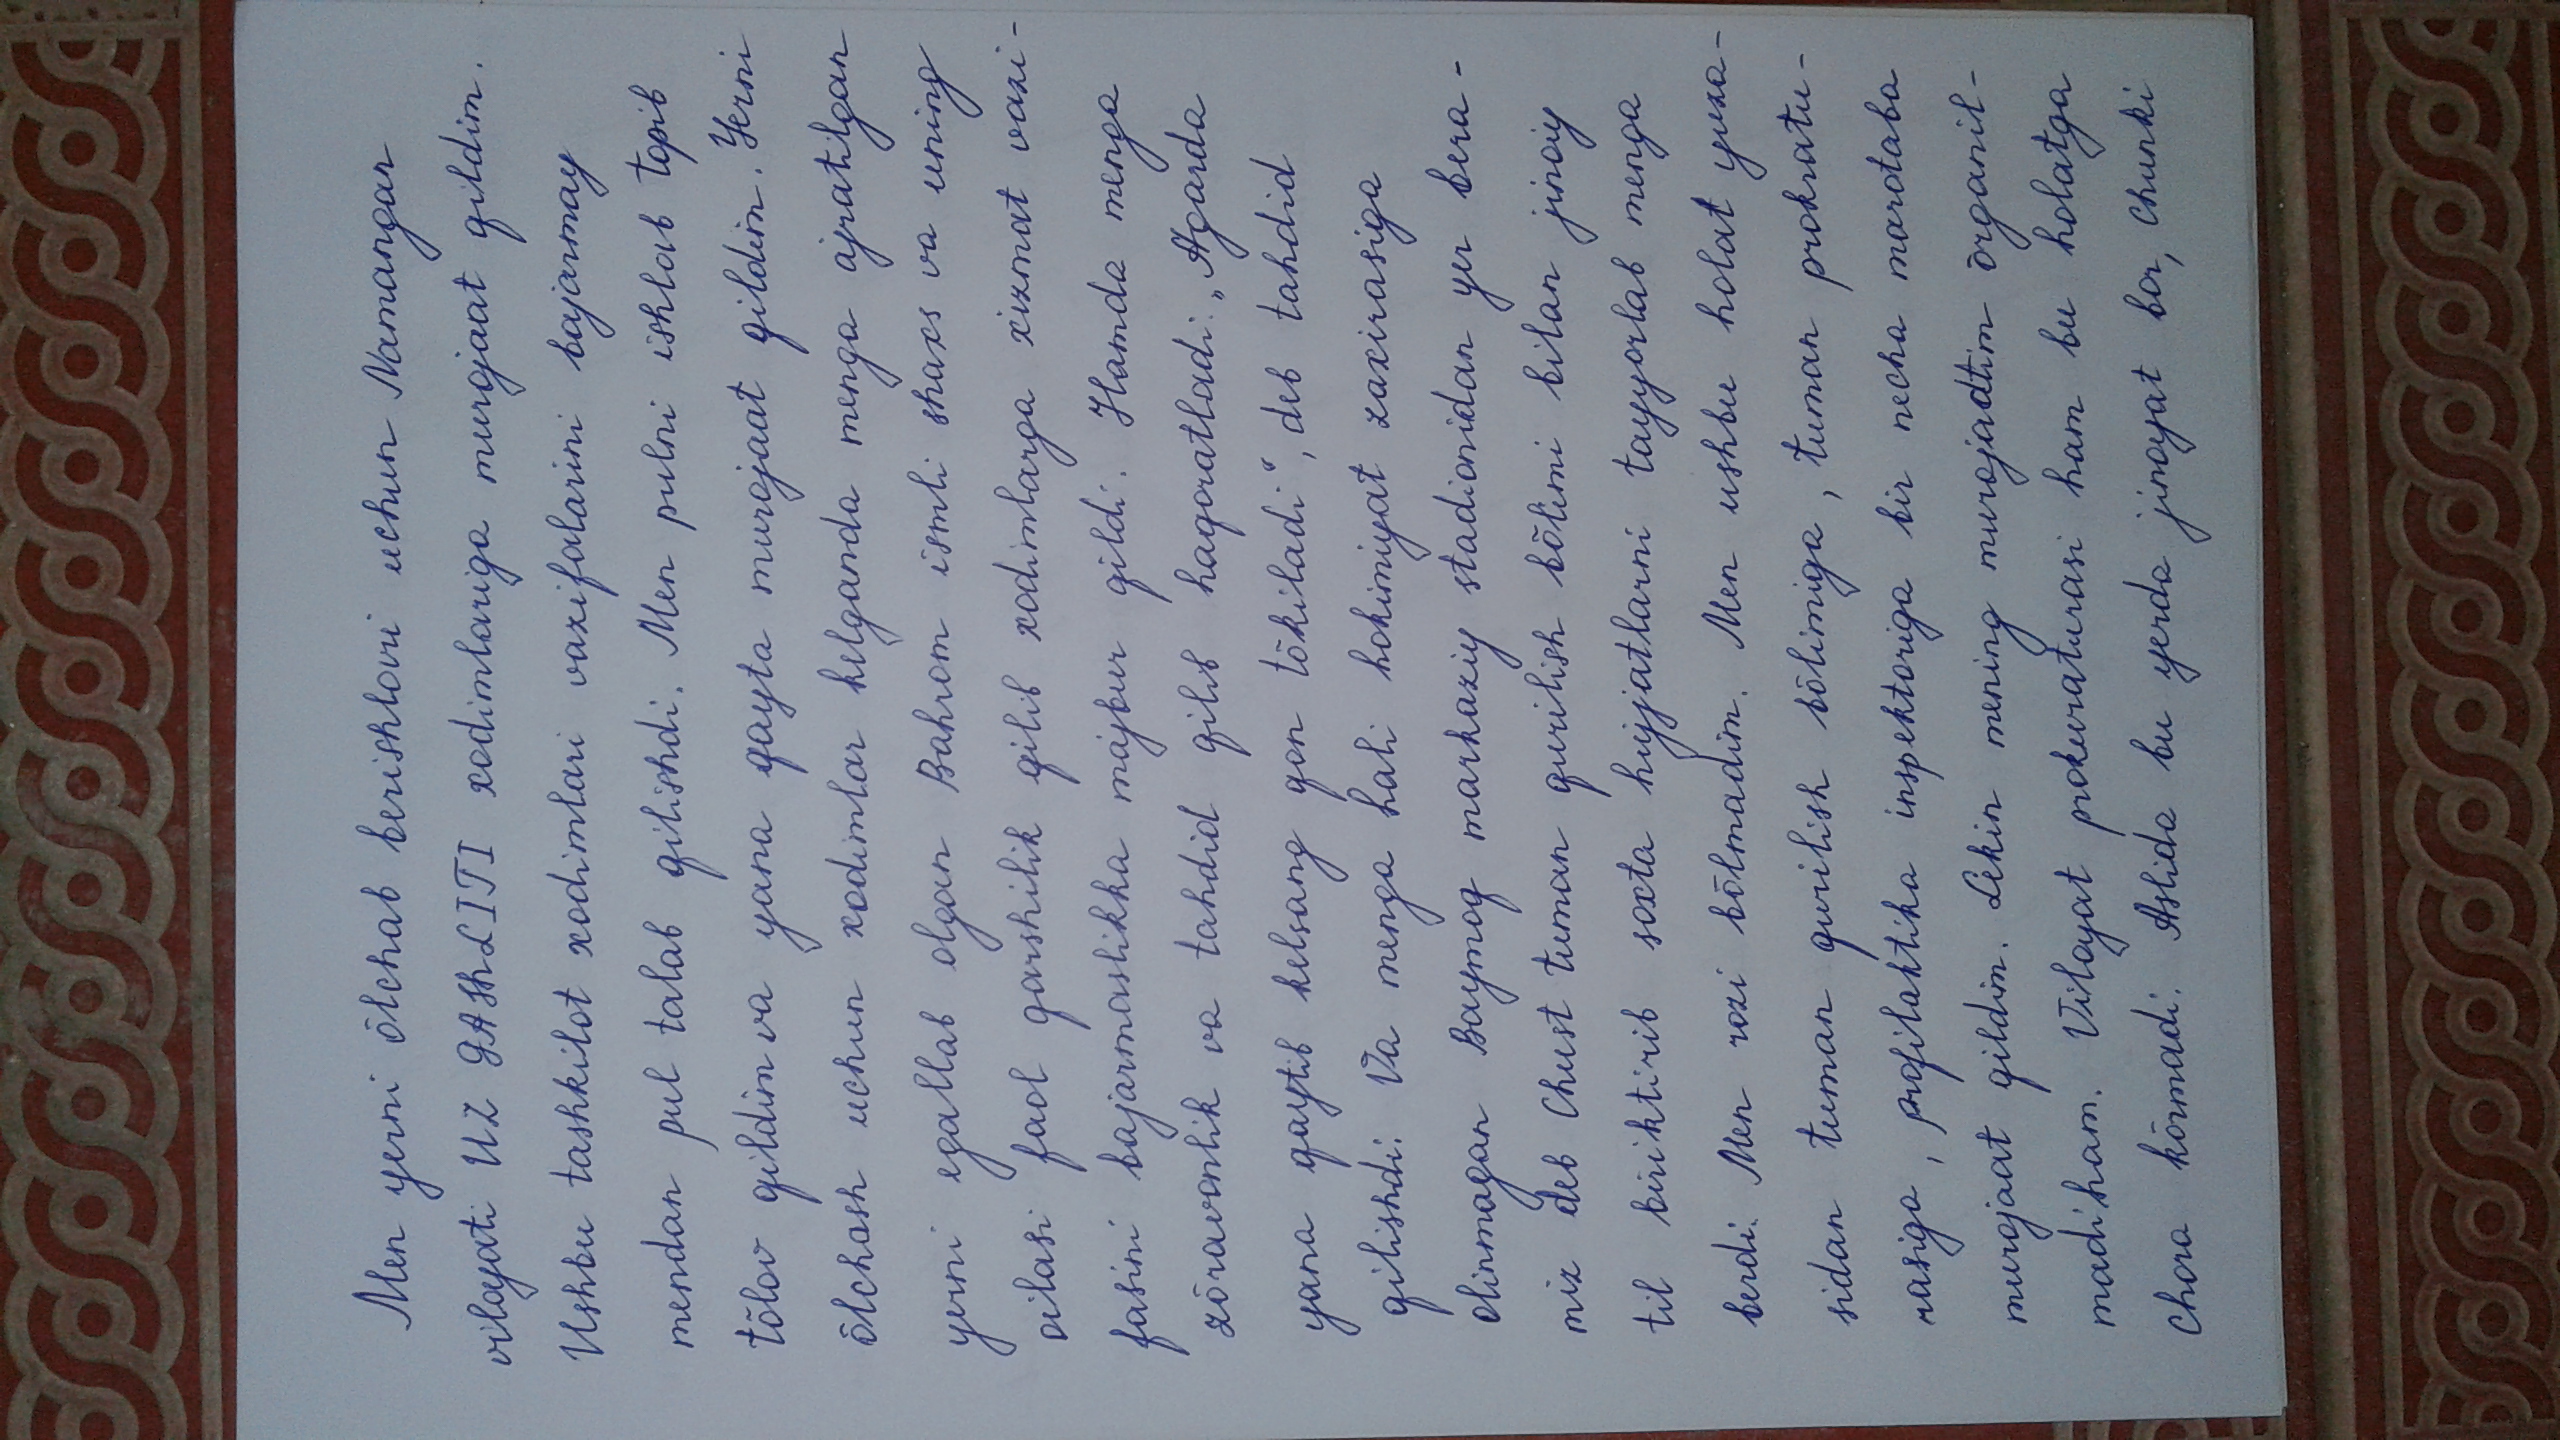 Men yerni õlchab berishlari uchun Namangan
viloyati UZ GAShLITI xodimlariga murojaat qildim.
Ushbu tashkilot xodimlari vazifalarini bajarmay
mendan pul talab qilishdi. Men pulni ishlab topib
tõlov qildim va yana qayta murojaat qildim. Yerni
õlchash uchun xodimlar kelganda menga ajratilgan
yerni egallab olgan Bahrom ismli shaxs va uning
oilasi faol qarshilik qilib xodimlarga xizmat vazi-
fasini bajarmaslikka majbur qildi. Hamda menga
zõravonlik va tahdid qilib haqoratladi: „Agarda
yana qaytib kelsang qon tõkiladi“, deb tahdid
qilishdi. Va menga hali hokimiyat zaxirasiga
olinmagan Baymoq markaziy stadionidan yer bera-
miz deb Chust tuman qurilish bõlimi bilan jinoiy
til biriktirib soxta hujjatlarni tayyorlab menga
berdi. Men rozi bõlmadim. Men ushbu holat yuza-
sidan tuman qurilish bõlimiga, tuman prokratu-
rasiga, profilaktika inspektoriga bir necha marotaba
murojaat qildim. Lekin mening murojaatim õrganil-
madi ham. Viloyat prokuraturasi ham bu holatga
chora kõrmadi. Aslida bu yerda jinoyat bor, chunki